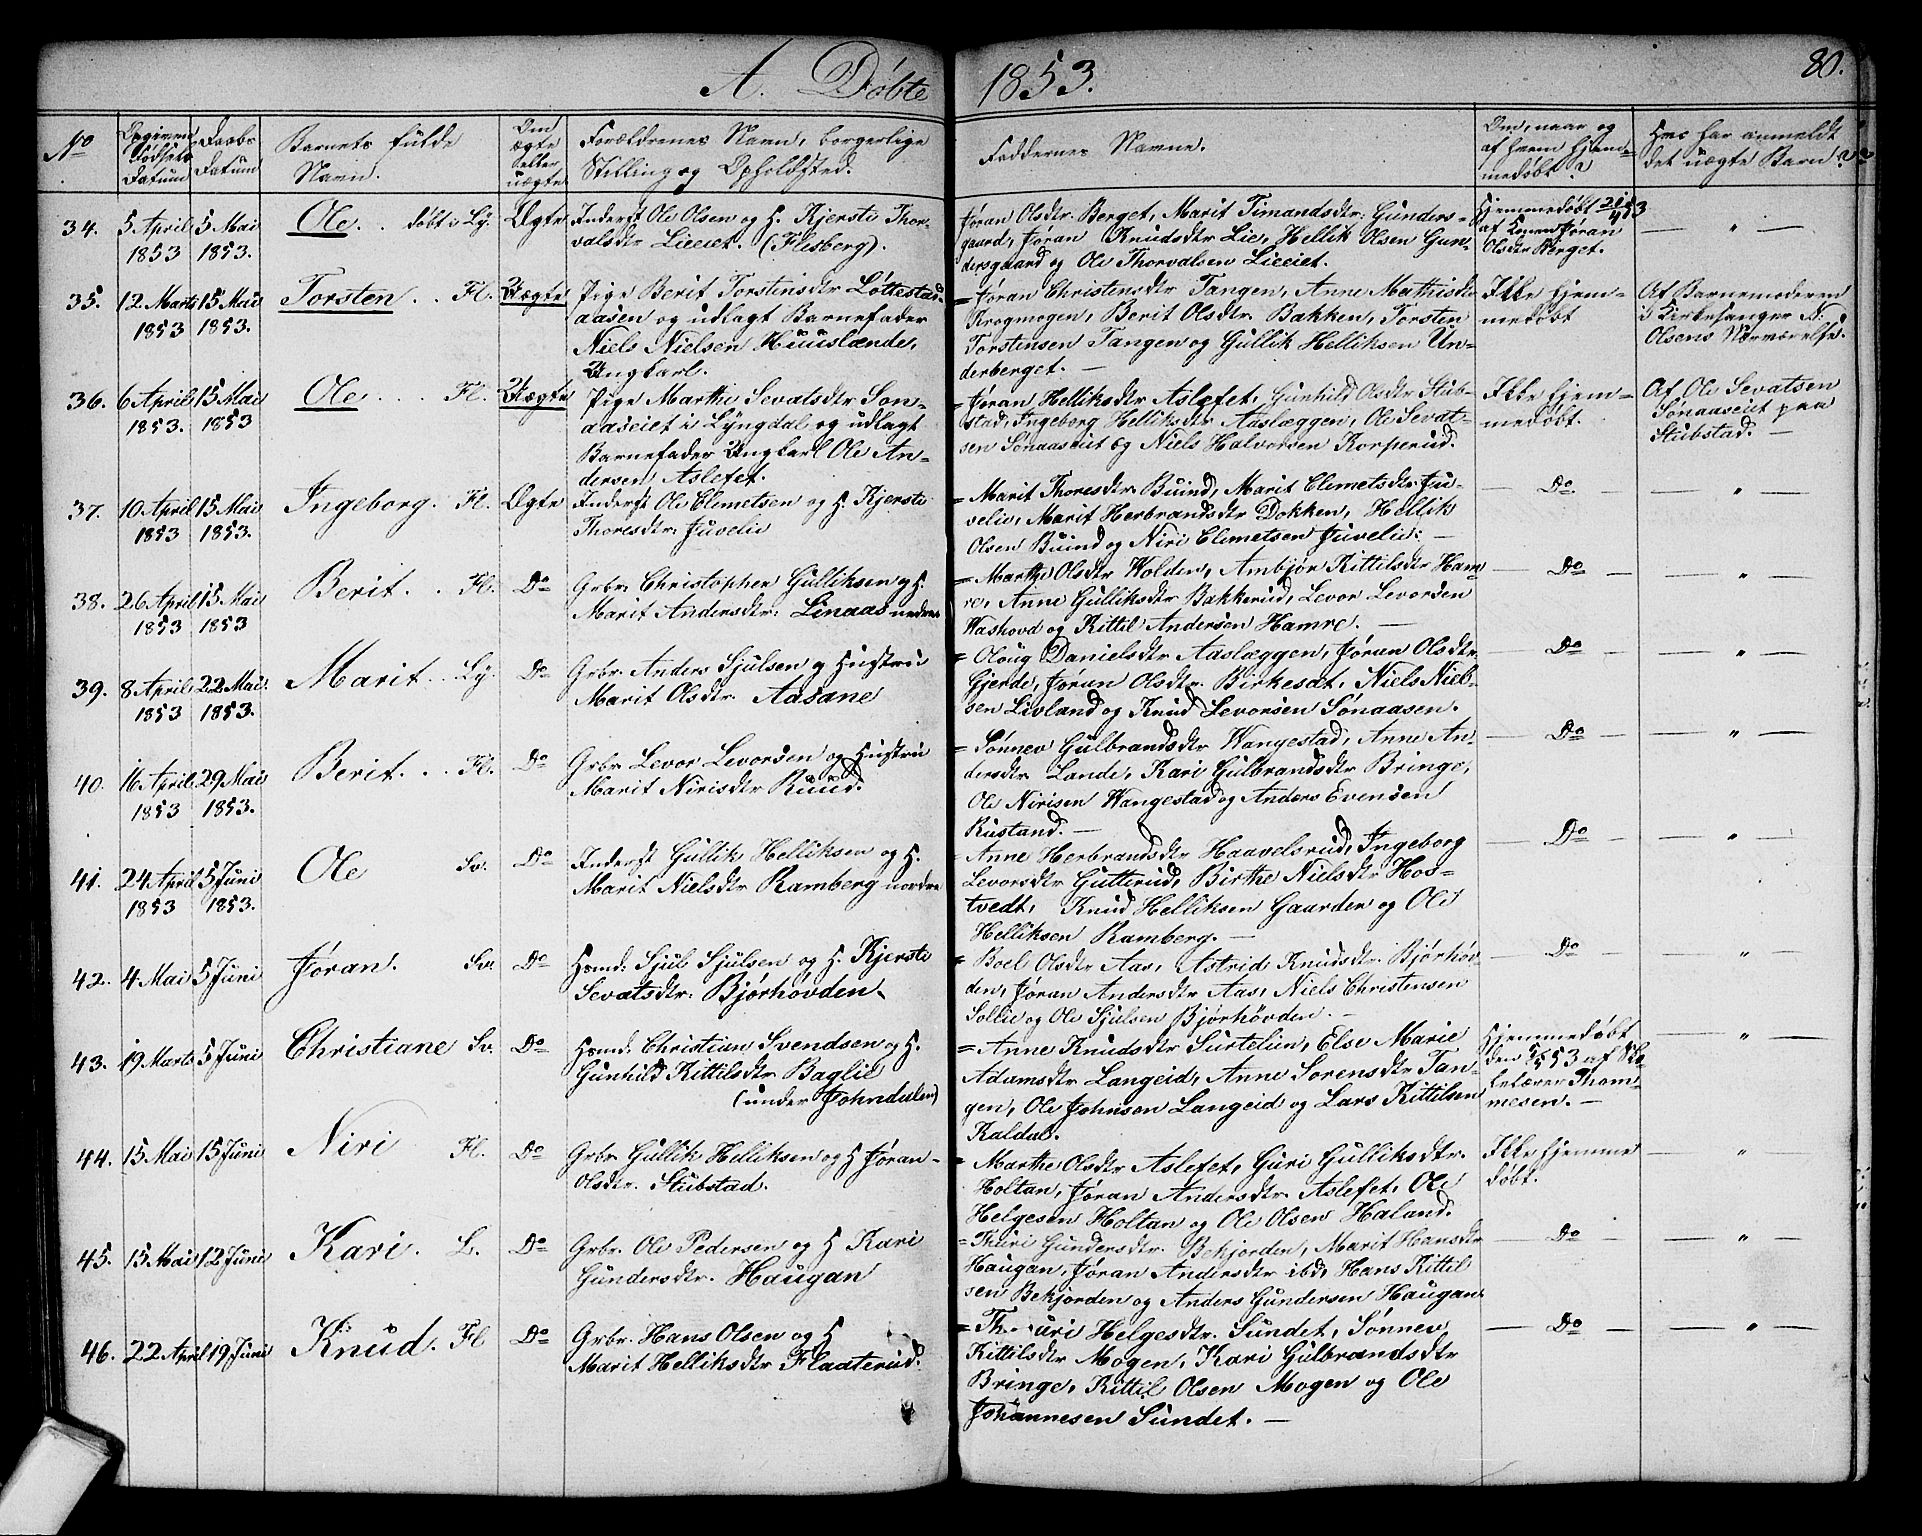 A. Døbte 1853. 80.
No
Opgiven Fødsels Datum
Daabs Datum
Barnets fulde Navn.
Om ægte eller uægte
Forældrenes Navn, borgerlige
Stilling og Opholdsted.
Faddernes Navne.
Om, naar og
af hvem hjem-
medøbt?
Hvo har anmeldt
det uægte Barn?
34. 5 April 1853 5 Mai 1853. Ole . . døbt i Ly. Ægte
Inderst Ole Olsen og H. Kjersti Thor-
valsdtr Lieeiet. (Flesberg).
Jøran Olsdtr. Berget, Marit Timandsdtr: Gunders-
gaard, Jøran Knudsdtr Lie, Hellik Olsen Gun-
dersgaard og Ole Thorvalsen Lieeiet.
Hjemmedøbt 21/4 53
af Konen Jøran
Olsdtr Berget.
— " —
35. 12 Marts 1853 15 Mai 1853. Torsten . . Fl. Uægte
Pige Berit Torstensdtr Løttestad-
aasen og udlagt Barnefader
Niels Nielsen Huuslænde,
Ungkarl.
= Jøran Christensdtr Tangen, Anne Mathisdtr
Krogmogen, Berit Olsdtr. Bakken, Torsten
Torstensen Tangen og Gullik Helliksen Un-
derberget. —
Ikke hjem-
medøbt
Af Barnemoderen
i Kirkesanger N.
Olsens Nærværelse.
36. 6 April 1853. 15 Mai 1853 Ole . . . . Fl. Uægte
Pige Marthe Sevatsdtr Søn-
aaseiet i Lyngdal og udlagt
Barnefader Ungkarl Ole An-
dersen Aslefet.
= Jøran Helliksdtr Aslefet, Gunhild Olsdtr Stub-
stad, Ingeborg Helliksdtr Aaslæggen, Ole Sevat-
sen Sønaaseiet og Niels Halvorsen Korperud.
Ikke hjem-
medøbt.
Af Ole Sevatsen
Sønaaseiet paa
Stubstad. —
37. 10 April 1853 15 Mai 1853. Ingeborg. Fl. Ægte
Inderst Ole Clemetsen og H. Kjersti
Thoresdtr: Juvelie
= Marit Thoresdtr. Buind, Marit Clemetsdtr Ju-
velie, Marit Herbrandsdtr Dokken, Hellik
Olsen Buind og Niri Clemetsen Juvelie. —
— Do — — " —
38. 26 April 1853 15 Mai 1853 Berit. . . Fl. Do
Grbr. Christopher Gulliksen og H.
Marit Andersdtr: Linaas nedre
= Marthe Olsdtr Wolden, Ambjør Kittilsdtr Ham-
re, Anne Gulliksdtr Bakkerud, Levor Levorsen
Washovd og Kittil Andersen Hamre. —
— Do — — " —
39. 8 April 1853 22 Mai. 1853. Marit. . . Ly. Do
Grbr. Anders Sjulsen og Hustru
Marit Olsdtr. Aasane
= Oloug Danielsdtr Aaslæggen, Jøran Olsdtr.
Gjerde, Jøran Olsdtr. Birkesat, Niels Niel-
sen Livland og Knud Levorsen Sønaasen.
— Do — — " —
40. 16 April 1853 29 Mai 1853. Berit. . . Fl. Do
Grbr Levor Levorsen og Hustru
Marit Nirisdtr Ruud.
= Sønnev Gulbrandsdtr Wangestad, Anne An-
dersdtr Lande, Kari Gulbrandsdtr Bringe,
Ole Nirisen Wangestad og Anders Evensen
Rustand. —
— Do — — " —
41. 24 April 1853 5 Juni 1853. Ole Sv. Do
Inderst Gullik Helliksen og H.
Marit Nielsdtr Ramberg nordre
= Anne Herbrandsdtr Haavelsrud, Ingeborg
Levorsdtr Gutterud, Birthe Nielsdtr Hos-
tvedt, Knud Helliksen Gaarden og Ole
Helliksen Ramberg. —
— Do — — " —
42. 4 Mai 5 Juni Jøran. Sv. Do
Hsmd: Sjul Sjulsen og H. Kjersti
Sevatsdtr: Bjørhovden.
= Boel Olsdtr Aas, Astrid Knudsdtr. Bjørhov-
den, Jøran Andersdtr Aas, Niels Christensen
Sollie og Ole Sjulsen Bjørhovden. —
— Do — — " —
43. 19 Marts 5 Juni Christiane Sv. Do
Hsmd: Christian Svendsen og H.
Gunhild Kittilsdtr Baglie
(under Johndalen)
= Anne Knudsdtr Surtelun, Else Marie
Adamsdtr Langeid, Anne Sorensdtr Tan-
gen, Ole Johnsen Langeid og Lars Kittilsen
Kaldal.
Hjemmedøbt
den 53 af Sko-
lelærer Thom-
mesen. —
— " —
44. 15 Mai 15 Juni Niri Fl. Do
Grbr. Gullik Helliksen og H Jøran
Olsdtr. Stubstad.
= Marthe Olsdtr Aslefet, Guri Gulliksdtr.
Holtan, Jøran Andersdtr. Aslefet, Ole
Helgesen Holtan og Ole Olsen Haland.
Ikke hjemme
døbt.
— " —
45. 15 Mai 12 Juni Kari. L. Do
Grbr. Ole Pedersen og H Kari
Gundersdtr. Haugan
= Thuri Gundersdtr. Bekjorden, Marit Hansdtr
Haugan, Jøran Andersdtr ibd, Hans Kittil
sen Bekjorden og Anders Gundersen Haugan.
— Do — — " —
46. 22 April 19 Juni Knud. Fl Do
Grbr. Hans Olsen og H
Marit Helliksdtr Flaaterud.
= Thuri Helgesdtr. Sundet, Sønnev
Kittilsdtr Mogen, Kari Gulbrandsdtr
Bringe, Kittil Olsen Mogen og Ole
Johannesen Sundet. —
— Do — — " —